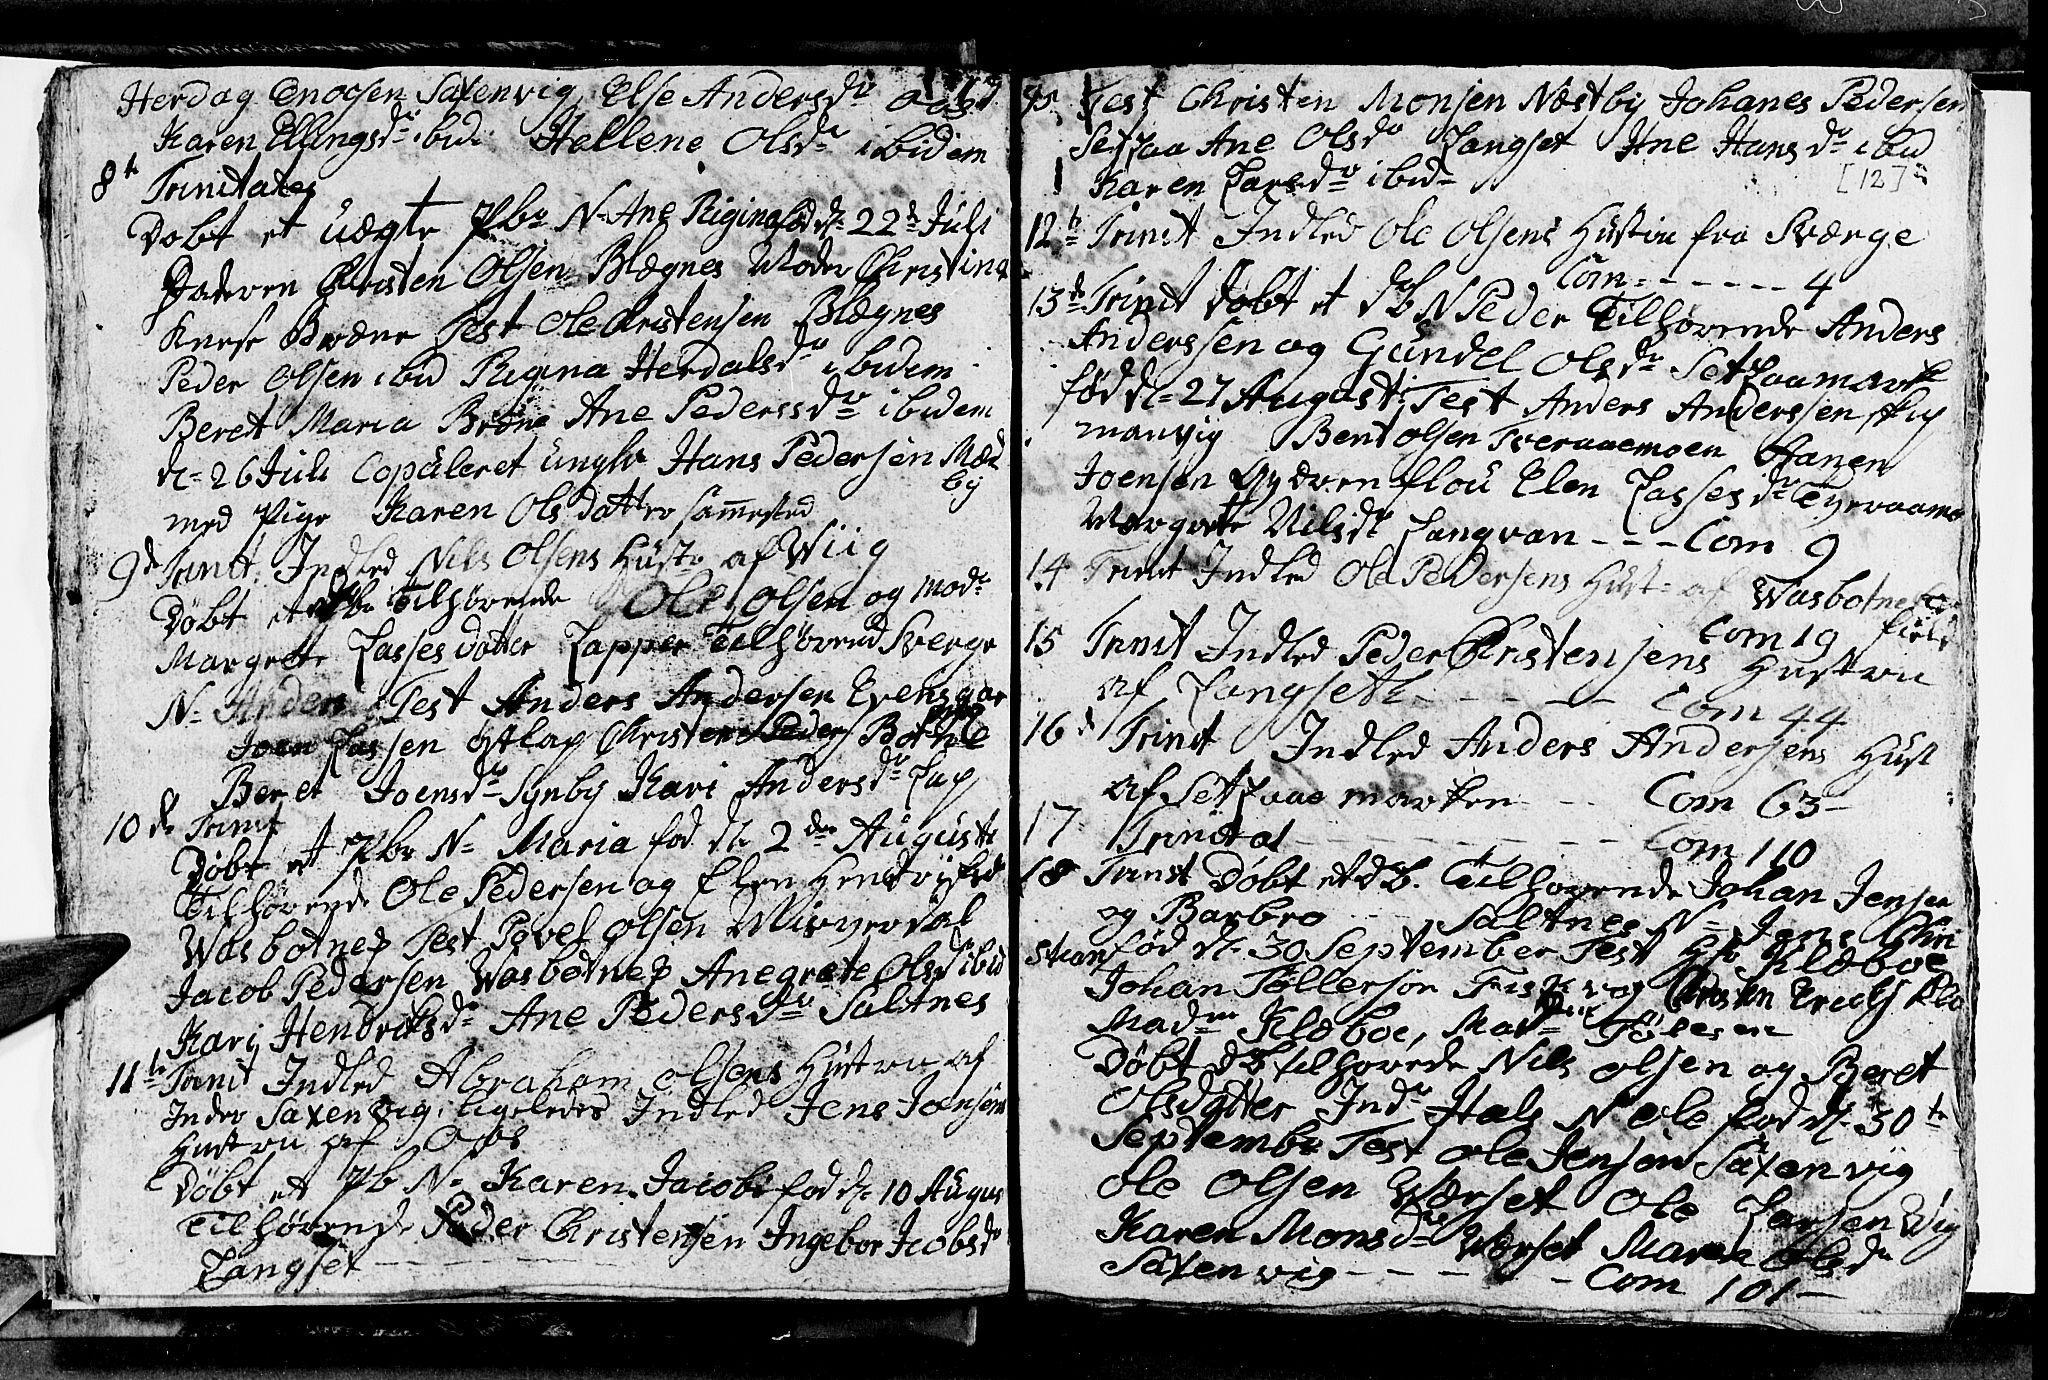 Herdag Enocsen Saxenvig, Else Andersdr
Karen Ellingsdr ibid. Hellene Olsdr ibidem
8te Trinitates
Døbt et uægte Pbr N. Ane Rigina fød d. 22de Juli
Faderen Christen Olsen Blægnes Moder Christina
Test Ole Christensen Blægnes
Peder Olsen ibid Rigina Herdalsdr ibidem
Beret Maria Ane Pederssdr ibidem
d. 26 Juli Copuleret ungkr Hans Pedersen
by
med Pige Karen Olsdatter sammested
9de Trinit. Indled Nils Olsens Hustr af Wiig
Døbt et Tilhørende Ole Olsen og Modr
Margrete Lassesdatter Lapper Tilhørend Sverge
N. Anders Test Anders Andersen Evensgar
Joen Lassen Christen Peders Botne
Beret Joensdr Synby Kari Andersdr Lap
10de Trinit
Døbt et Pbr N. Maria fød d. 2den Auguste
Tilhørende Ole Pedersen og Elen
Wasbotnep Test Povel Olsen Misverdal
Jacob Pedersen Wasbotnep Anegrete Olsd ibid
Kari Hendriksdr Ane Pedersdr Saltnes
11te Trinit Indled Abraham Olsens Hustru af
Inder Saxenvig, ligeledes Indled Jens Jonsøns
Hustru af
Døbt et Pb N. Karen Jacobe fød d. 10 Augus
Tilhørende Peder Christensen Ingebor Jacobsdr
Langset
Test Christen Monsen Næstby Johanes Pedersen
Setzaa Ane Olsdr Langset Ane Hansdr ibid
Karen Larsdr ibid [12]
12te Trinit Indled Ole Olsens Hustru fra Sværge
Com. - - - - - 4
13de Trinit Døbt et db N Peder Tilhørende Anders
Anderssen og Gundel Olsdr Setzaamark
fød d. 27 August Test Anders Anderssen skip
manvig Bent Olsen Tveraaemoen
Joensen Elen Lassesdr
Margrete Nilsdr Langvan - - - Com 9
14 Trinit Indled Ole Pedersens Hustr af Wasbotne
Com 19
15 Trinit Indled Peder Christensens Hustru
af Langseth - - - - - Com 44
16d Trinit Indled Anders Andersens Hust
af Setzaae marken - - Com 63 -
17 Trinitat - - - - - Com 110
18 Trinit Døbt et db. Tilhørende Johan Jensen
og Barbro - - - Saltnes N. Jens Chri
stian fød d. 30 September Test Hr Klæboe
Johan Tøllersøn Christen
Madme Klæboe, Madm
Døbt db tilhørede Nils Olsen og Beret
Olsdatter Indr Hals N Ole fød d. 30te
Septembr Test Ole Jensøn Saxenvig
Ole Olsen Wærset Ole Larsen Vig
Karen Monsdr Wærset Maren Olsdr
Saxenvig - - - - - Com 101 -